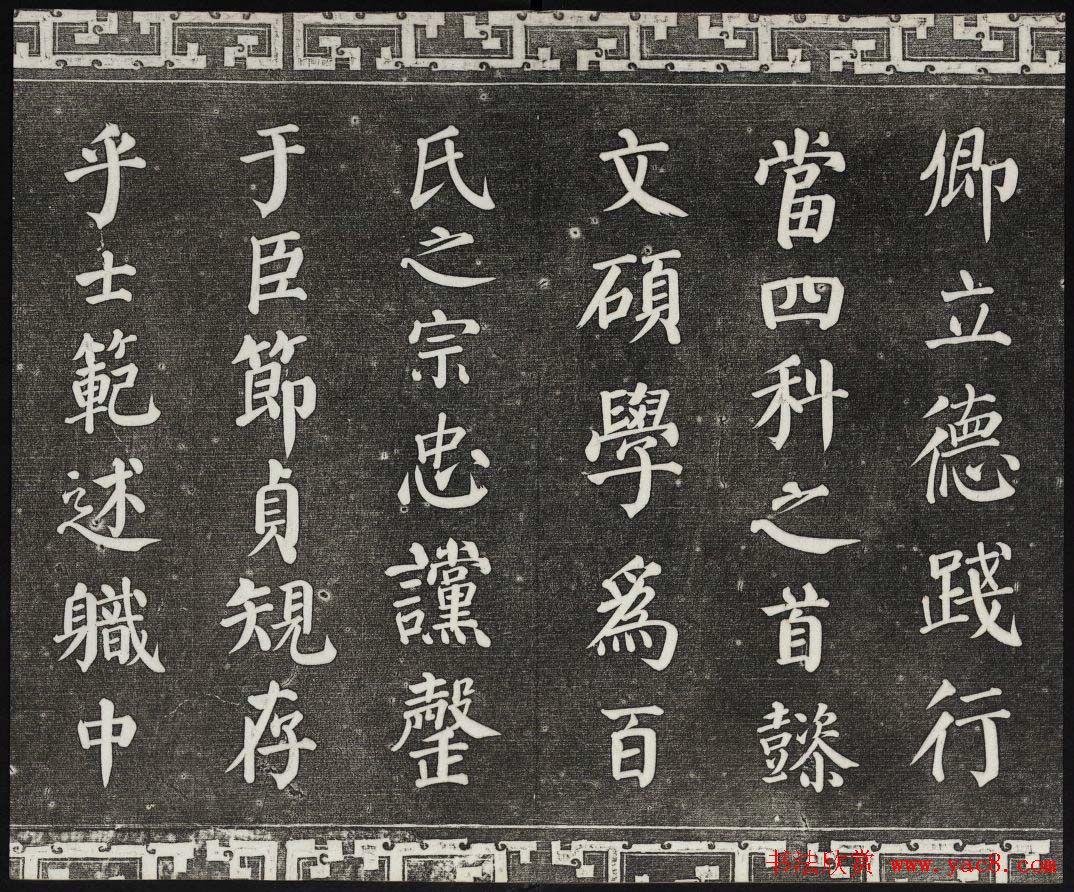 卿立德踐行
當四科之首懿
文碩學爲百
氏之宗忠讜罄
于臣節貞規存
乎士範述職中
书法欣赏 www.yac8.com